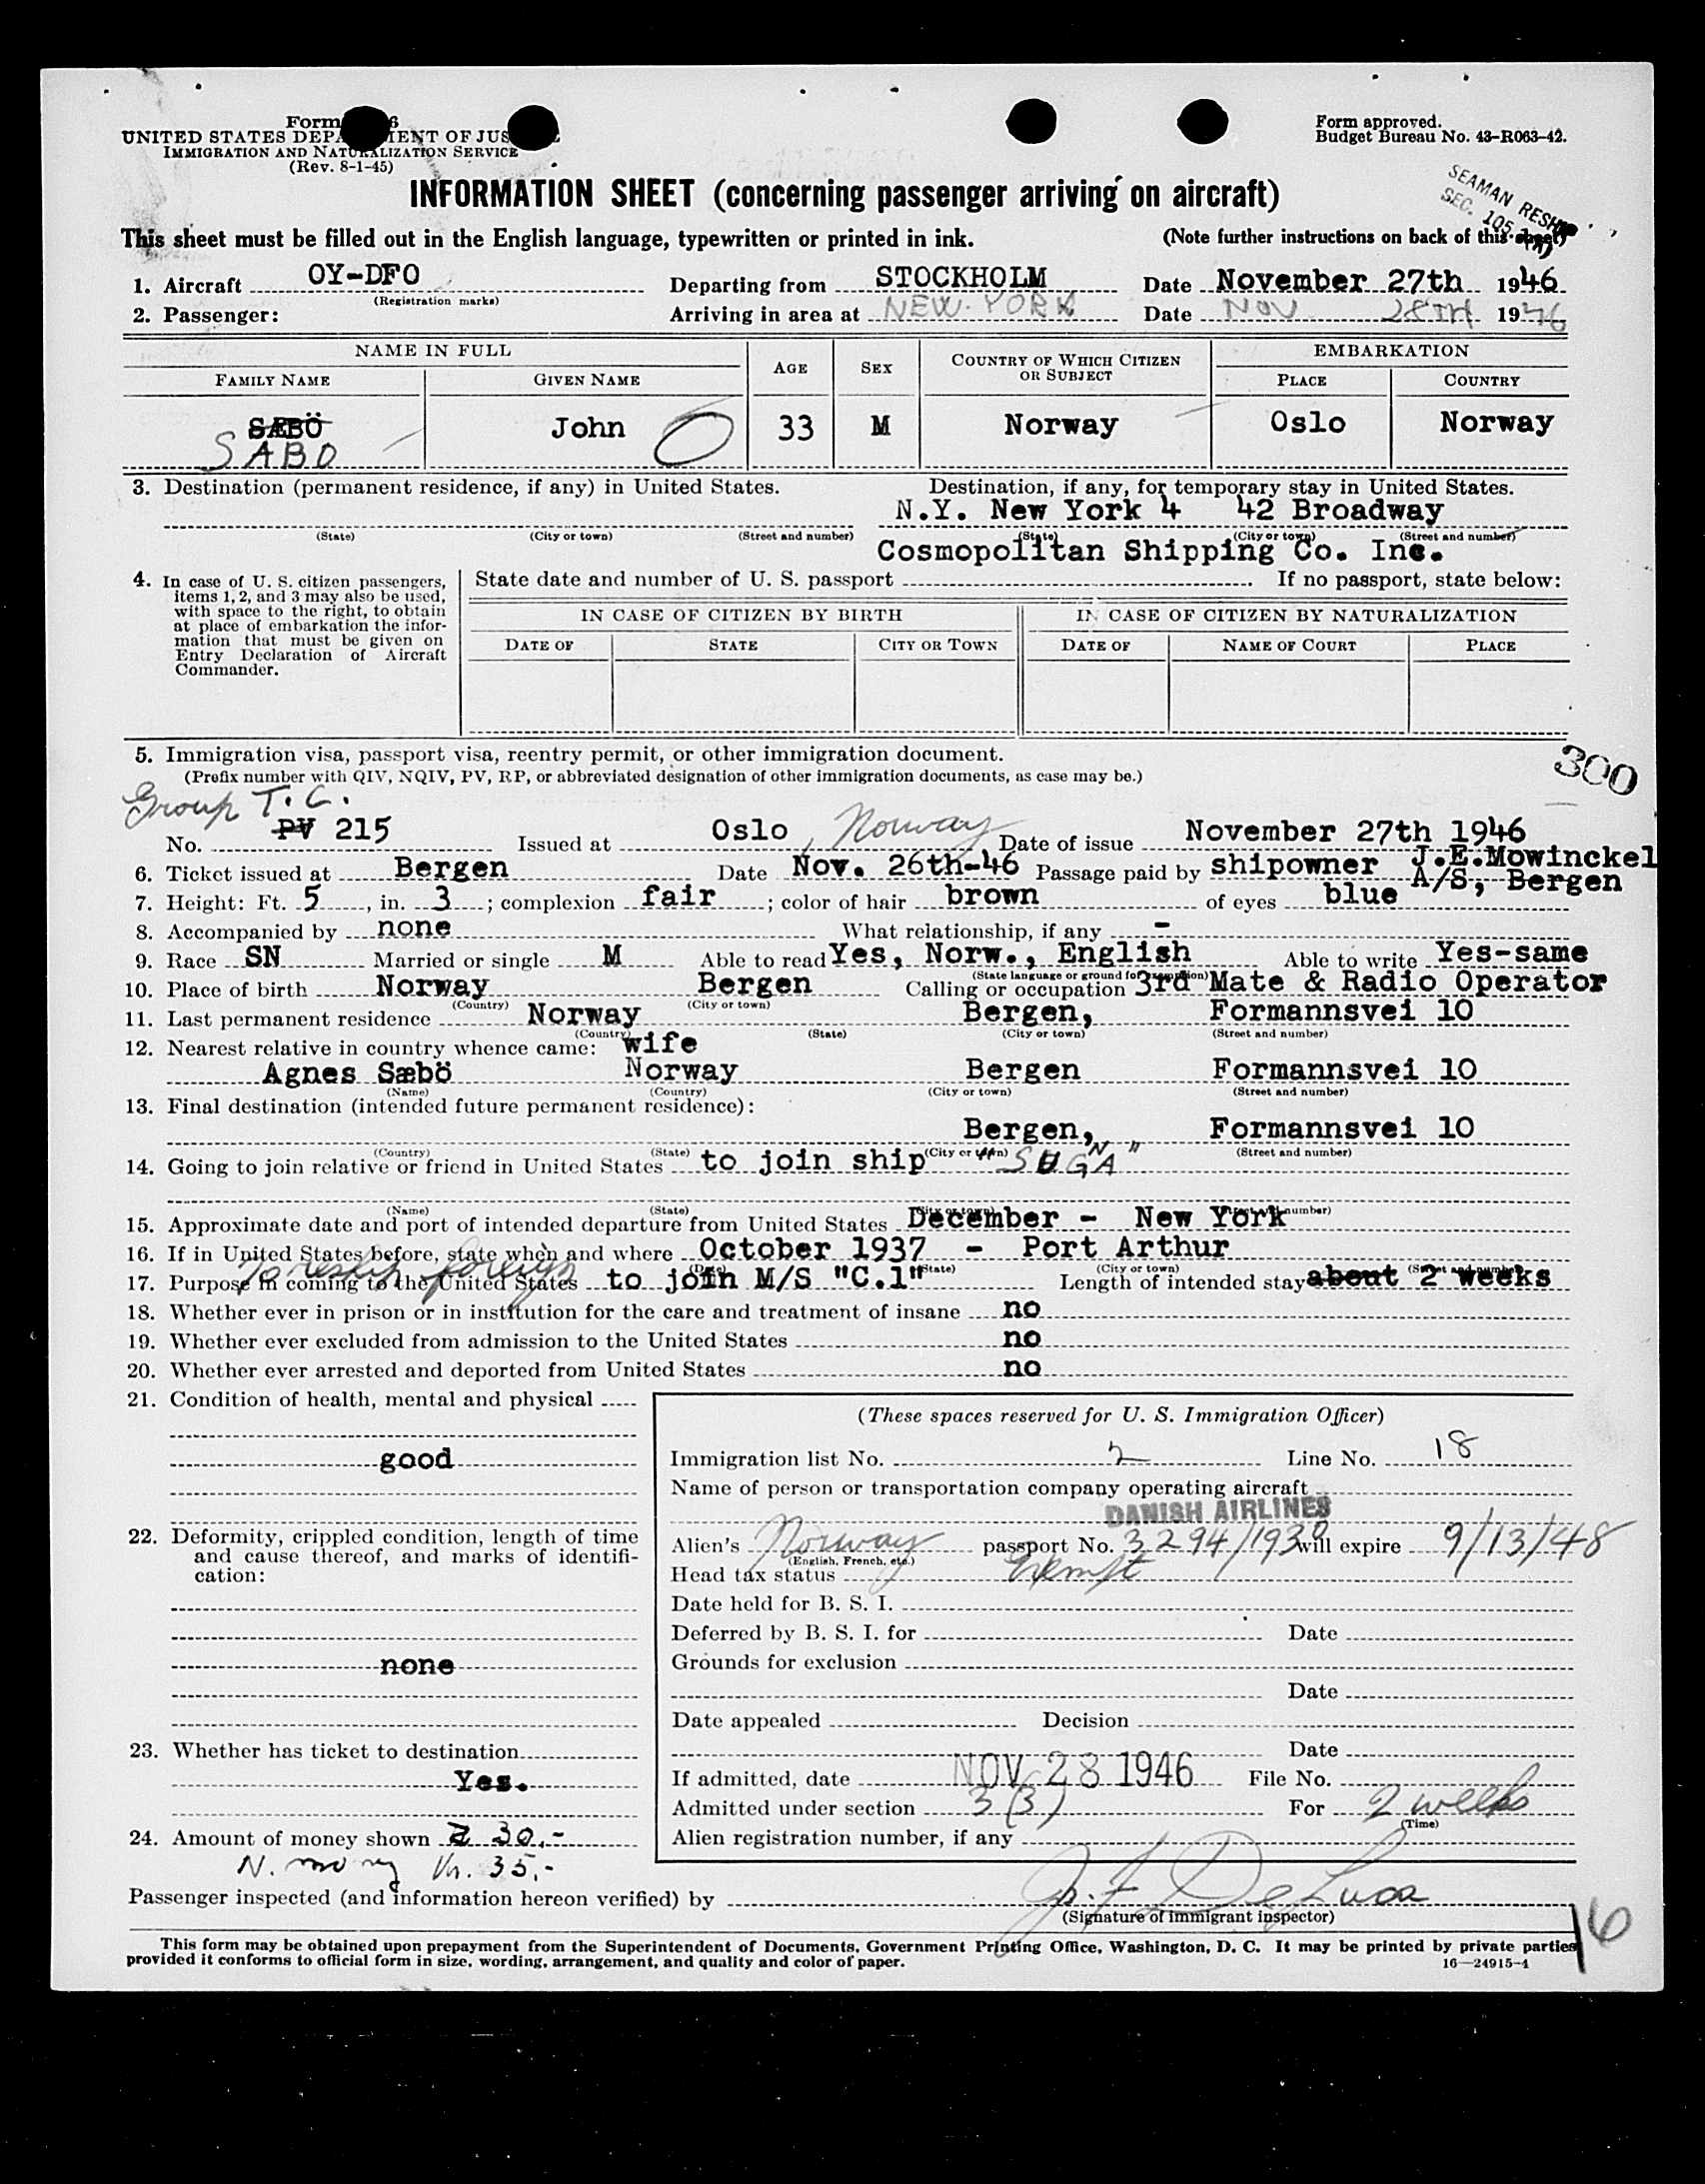 Form 6
UNITED STATES DEPA MENT OF JUS
IMMIGRATION AND NATURALIZATION SERVICE
(Rev. 8-1-45)
Form approved.
Budget Bureau No. 43-R063-42.
INFORMATION SHEET (concerning passenger arriving on aircraft)
SEAMAN RESHIP
SEC. 105
This sheet must be filled out in the English language, typewritten or printed in ink. (Note further instructions on back of this sheet)
1. Aircraft OY-DFO Departing from STOCKHOLM Date November 27th 1946
(Registration marks)
2. Passenger: Arriving in area at NEW YORK Date NOV 28TH 1946
NAME IN FULL AGE SEX COUNTRY OF WHICH CITIZEN OR SUBJECT EMBARKATION
FAMILY NAME GIVEN NAME PLACE COUNTRY
SÆBÖ John 33 M Norway Oslo Norway
SABO
3. Destination (permanent residence, if any) in United States. Destination, if any, for temporary stay in United States.
N.Y. New York 4 42 Broadway
(State) (City or town) (Street and number) (State) (City or town) (Street and number)
Cosmopolitan Shipping Co. Inc.
4. In case of U. S. citizen passengers, items 1, 2, and 3 may also be used, with space to the right, to obtain at place of embarkation the information that must be given on Entry Declaration of Aircraft Commander.
State date and number of U. S. passport If no passport, state below:
IN CASE OF CITIZEN BY BIRTH IN CASE OF CITIZEN BY NATURALIZATION
DATE OF STATE CITY OR TOWN DATE OF NAME OF COURT PLACE
5. Immigration visa, passport visa, reentry permit, or other immigration document.
(Prefix number with QIV, NQIV, PV, RP, or abbreviated designation of other immigration documents, as case may be.)
300
Group T. C.
No. PV 215 Issued at Oslo, Norway Date of issue November 27th 1946
6. Ticket issued at Bergen Date Nov. 26th-46 Passage paid by shipowner J.E.Mowinckel
A/S, Bergen
7. Height: Ft. 5, in. 3; complexion fair; color of hair brown of eyes blue
8. Accompanied by none What relationship, if any -
9. Race SN Married or single M Able to read Yes, Norw., English Able to write Yes-same
(State language or ground for exemption)
10. Place of birth Norway Bergen Calling or occupation 3rd Mate & Radio Operator
(Country) (City or town)
11. Last permanent residence Norway Bergen, Formannsvei 10
(Country) (State) (City or town) (Street and number)
12. Nearest relative in country whence came: wife
Agnes Sæbö Norway Bergen Formannsvei 10
(Name) (Country) (City or town) (Street and number)
13. Final destination (intended future permanent residence):
Bergen, Formannsvei 10
(Country) (State) (City or town) (Street and number)
14. Going to join relative or friend in United States to join ship
(Name) (State) (City or town) (Street and number)
15. Approximate date and port of intended departure from United States December - New York
16. If in United States before, state when and where October 1937 - Port Arthur
(Date) (State) (City or town) (Street and number)
To reship foreign
17. Purpose in coming to the United States to join M/S "C.1" Length of intended stay about 2 weeks
18. Whether ever in prison or in institution for the care and treatment of insane no
19. Whether ever excluded from admission to the United States no
20. Whether ever arrested and deported from United States no
21. Condition of health, mental and physical
good
22. Deformity, crippled condition, length of time and cause thereof, and marks of identification:
none
23. Whether has ticket to destination
Yes.
24. Amount of money shown 30.-
N. money Kr. 35.-
(These spaces reserved for U. S. Immigration Officer)
Immigration list No. 2 Line No. 18
Name of person or transportation company operating aircraft
DANISH AIRLINES
Alien's Norway passport No. 3294/1930 will expire 9/13/48
(English, French, etc.)
Head tax status Exempt
Date held for B. S. I.
Deferred by B. S. I. for Date
Grounds for exclusion
Date
Date appealed Decision
Date
If admitted, date NOV 28 1946 File No.
Admitted under section 3(3) For 2 weeks
(Time)
Alien registration number, if any
Passenger inspected (and information hereon verified) by J. F. DeLuca
(Signature of immigrant inspector)
16
This form may be obtained upon prepayment from the Superintendent of Documents, Government Printing Office, Washington, D. C. It may be printed by private parties
provided it conforms to official form in size, wording, arrangement, and quality and color of paper. 16—24915-1